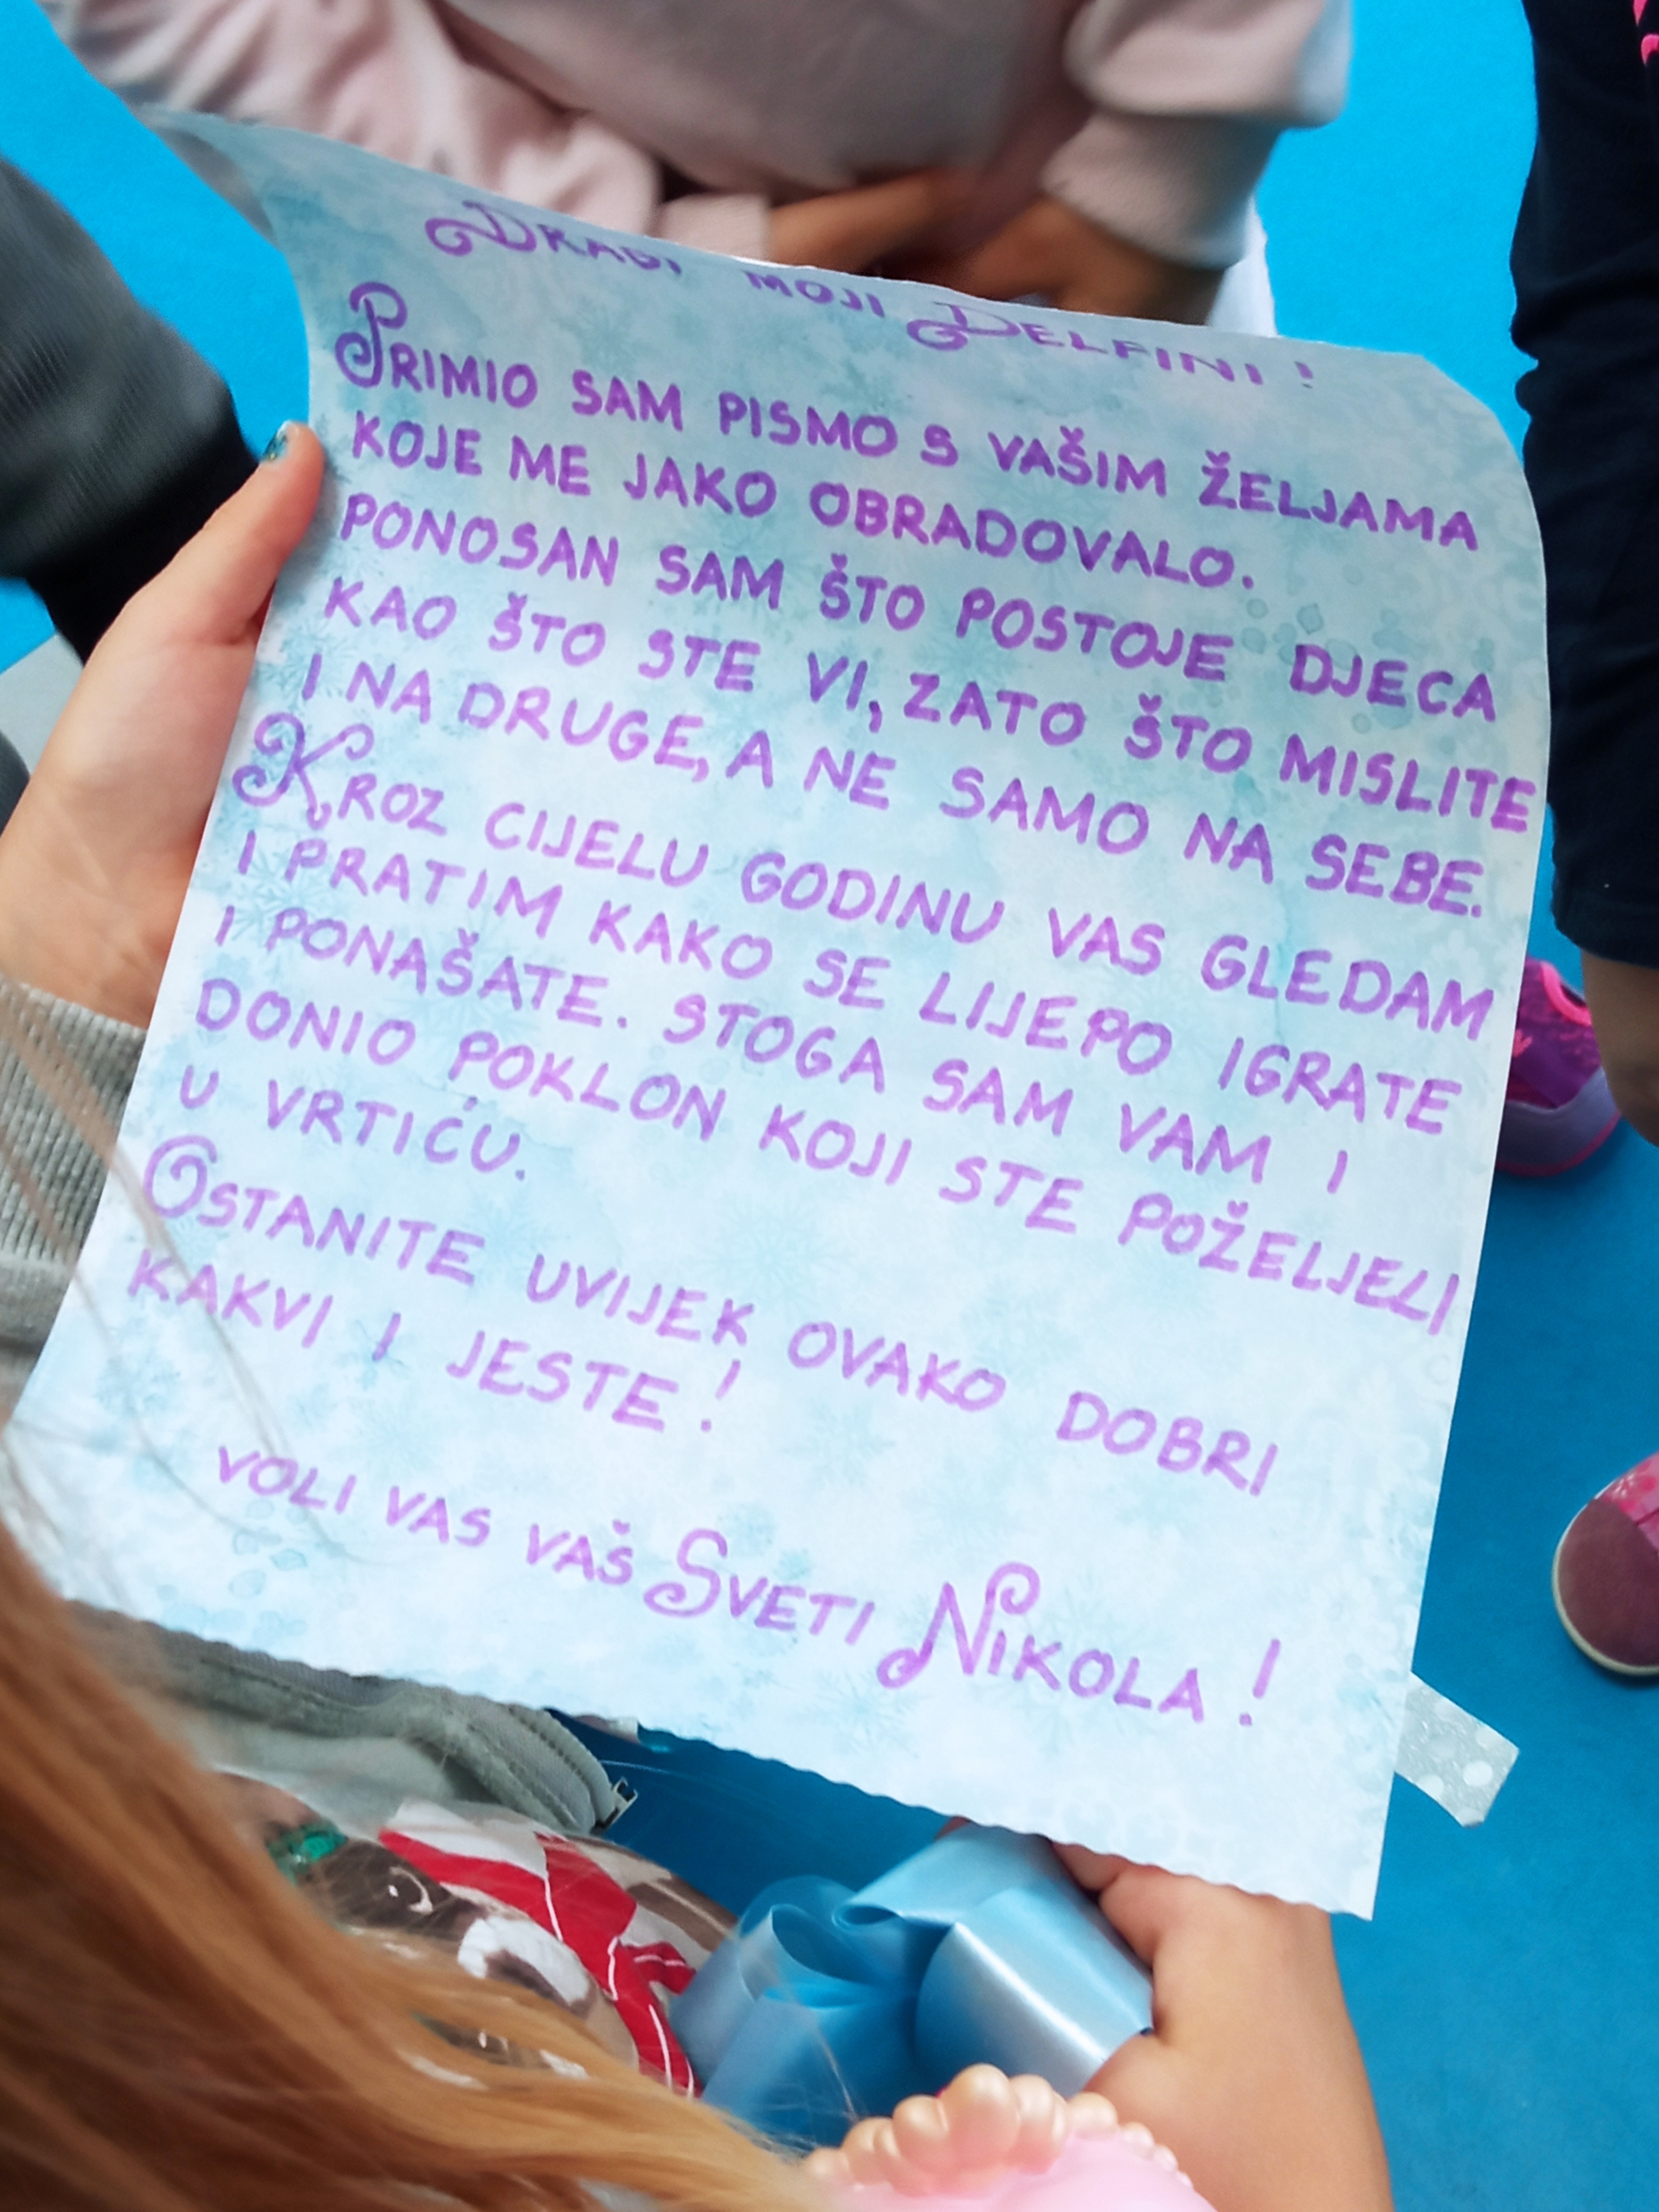 DRAGI MOJI DELFINI!
PRIMIO SAM PISMO S VAŠIM ŽELJAMA
KOJE ME JAKO OBRADOVALO.
PONOSAN SAM ŠTO POSTOJE DJECA
KAO ŠTO STE VI, ZATO ŠTO MISLITE
I NA DRUGE, A NE SAMO NA SEBE.
KROZ CIJELU GODINU VAS GLEDAM
I PRATIM KAKO SE LIJEPO IGRATE
I PONAŠATE. STOGA SAM VAM I
DONIO POKLON KOJI STE POŽELJELI
U VRTIĆU.
OSTANITE UVIJEK OVAKO DOBRI
KAKVI I JESTE!
VOLI VAS VAŠ SVETI NIKOLA!